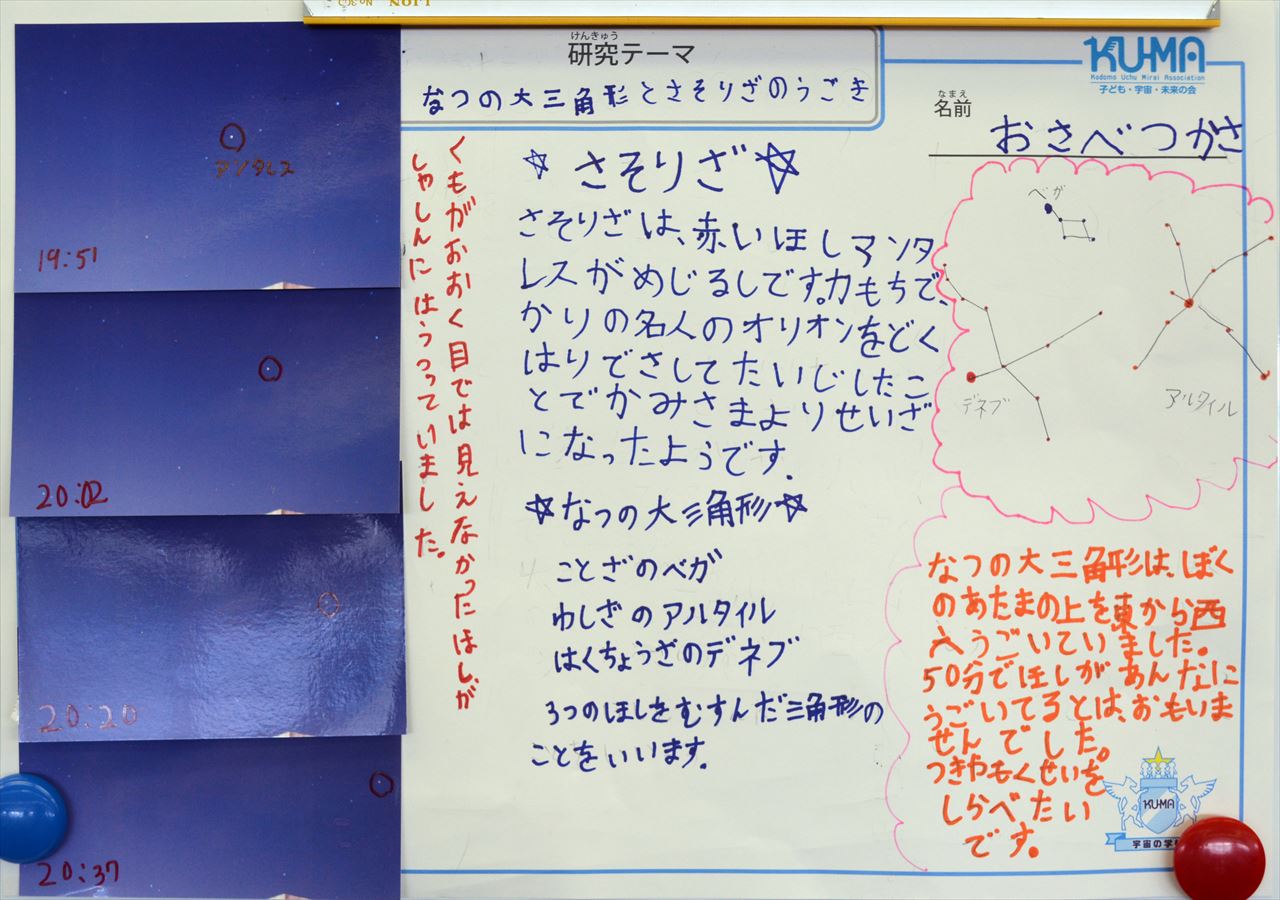 LION No.300
けんきゅう
研究テーマ
なつの大三角形とさそりざのうごき
KU-MA
Kodomo Uchu Mirai Association
子ども・宇宙・未来の会
なまえ
名前
おさべつかさ
アンタレス
19:51
20:02
20:20
20:37
くもがおおく目では見えなかったほしが
しゃしんにはうつっていました。
さそりざ
さそりざは、赤いほしアンタ
レスがめじるしです。力もちで、
かりの名人のオリオンをどく
はりでさしてたいじしたこ
とでかみさまよりせいざ
になったようです.
なつの大三角形
ことざのベガ
わしざのアルタイル
はくちょうざのデネブ
3つのほしをむすんだ三角形の
ことをいいます.
ベガ
デネブ
アルタイル
なつの大三角形は、ぼく
のあたまの上を東から西
へうごいていました。
50分でほしがあんなに
うごいてるとは、おもいま
せんでした。
つきやもくせいを
しらべたい
です。
KU-MA
宇宙の学